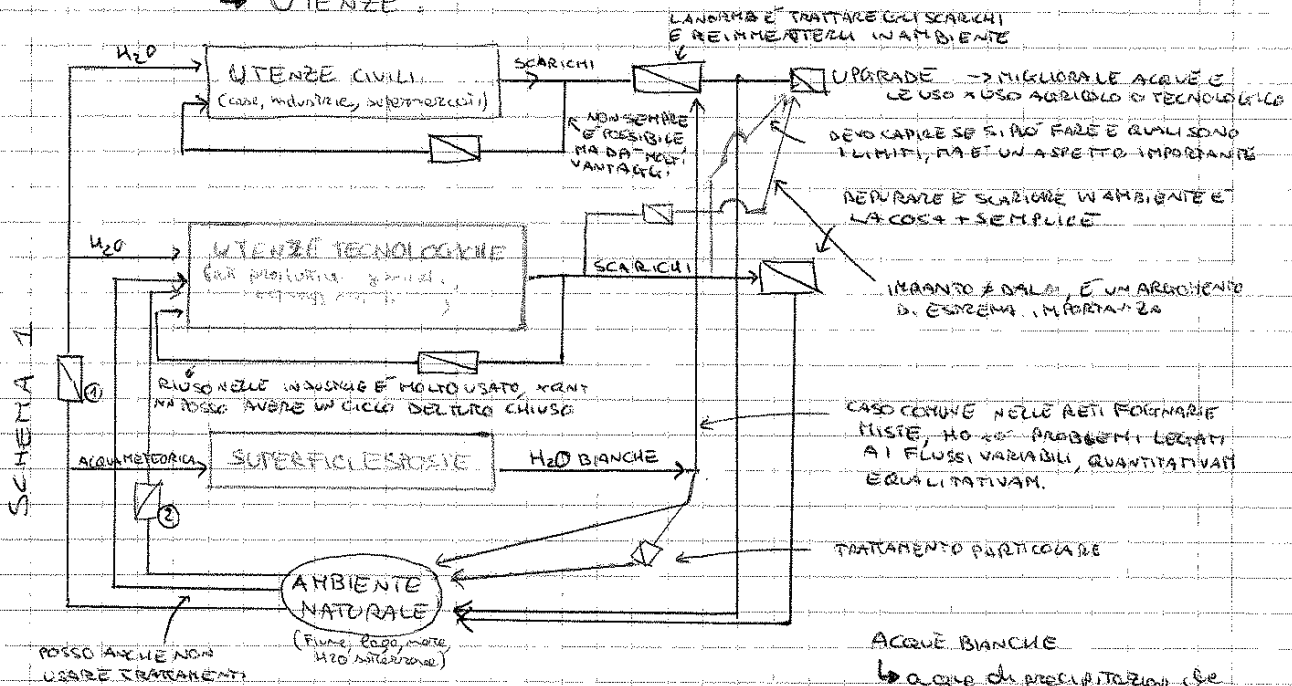 → UTENZE:
LA NORMA È TRATTARE GLI SCARICHI
E REIMMETTERLI IN AMBIENTE
H2O
UTENZE CIVILI
(case, industrie, supermercati)
SCARICHI
UPGRADE → MIGLIORA LE ACQUE E
LE USO x USO AGRICOLO O TECNOLOGICO
NON SEMPRE
È POSSIBILE,
MA DA MOLTI
VANTAGGI
DEVO CAPIRE SE SI PUÒ FARE E QUALI SONO
I LIMITI, MA È UN ASPETTO IMPORTANTE
DEPURARE E SCARICARE IN AMBIENTE È
LA COSA + SEMPLICE
H2O
UTENZE TECNOLOGICHE
SCARICHI
IMPIANTO ≠ DAL ①, È UN ARGOMENTO
DI ESTREMA IMPORTANZA
SCHEMA 1
①
RIUSO NELLE INDUSTRIE È MOLTO USATO,
NN POSSO AVERE UN CICLO DEL TUTTO CHIUSO
CASO COMUNE NELLE RETI FOGNARIE
MISTE, HO PROBLEMI LEGATI
AI FLUSSI VARIABILI, QUANTITATIVAM
E QUALITATIVAM.
ACQUA METEORICA
SUPERFICI ESPOSTE
H2O BIANCHE
②
TRATTAMENTO PARTICOLARE
AMBIENTE
NATURALE
(Fiume, lago, mare,
H2O sotterranee)
POSSO ANCHE NON
USARE TRATTAMENTI
ACQUE BIANCHE
↳ acque di precipitazioni che